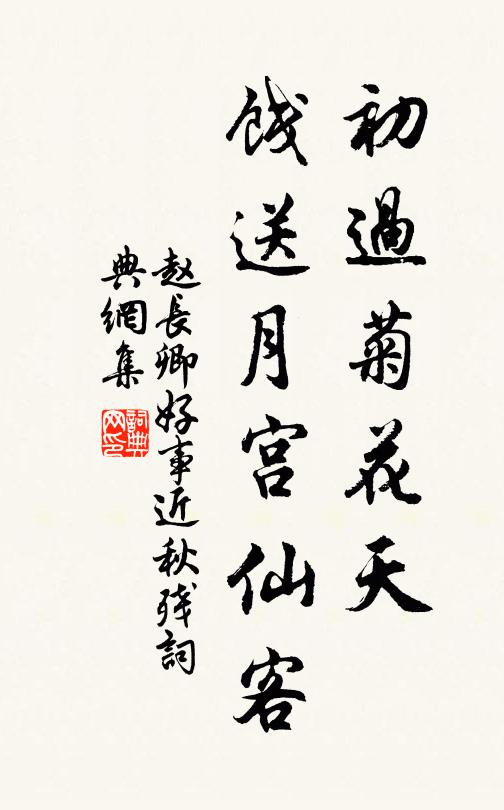 初過菊花天
餞送月宮仙客
赵長卿好事近秋残詞
典網集
詞典网印